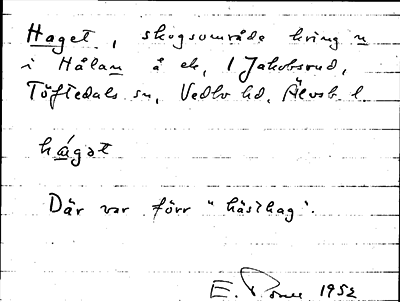 Haget, skogsområde kring n
i Hålan å ek, 1 Jakobsrud,
Töftedals sn, Vedbo hd, Älvsb. l.
hágət
Där var förr "hästhag".
E. 1952